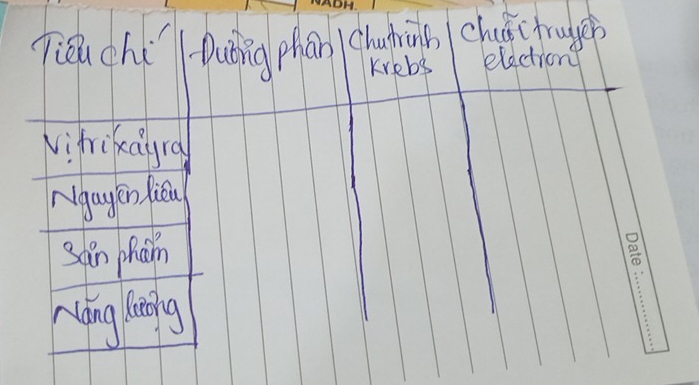 NADH.
Tiêu chí
Đường phân
Chu trình
Krebs
chuỗi truyền
electron
Vị trí xảy ra
Nguyên liệu
Sản phẩm
Năng lượng
Date :